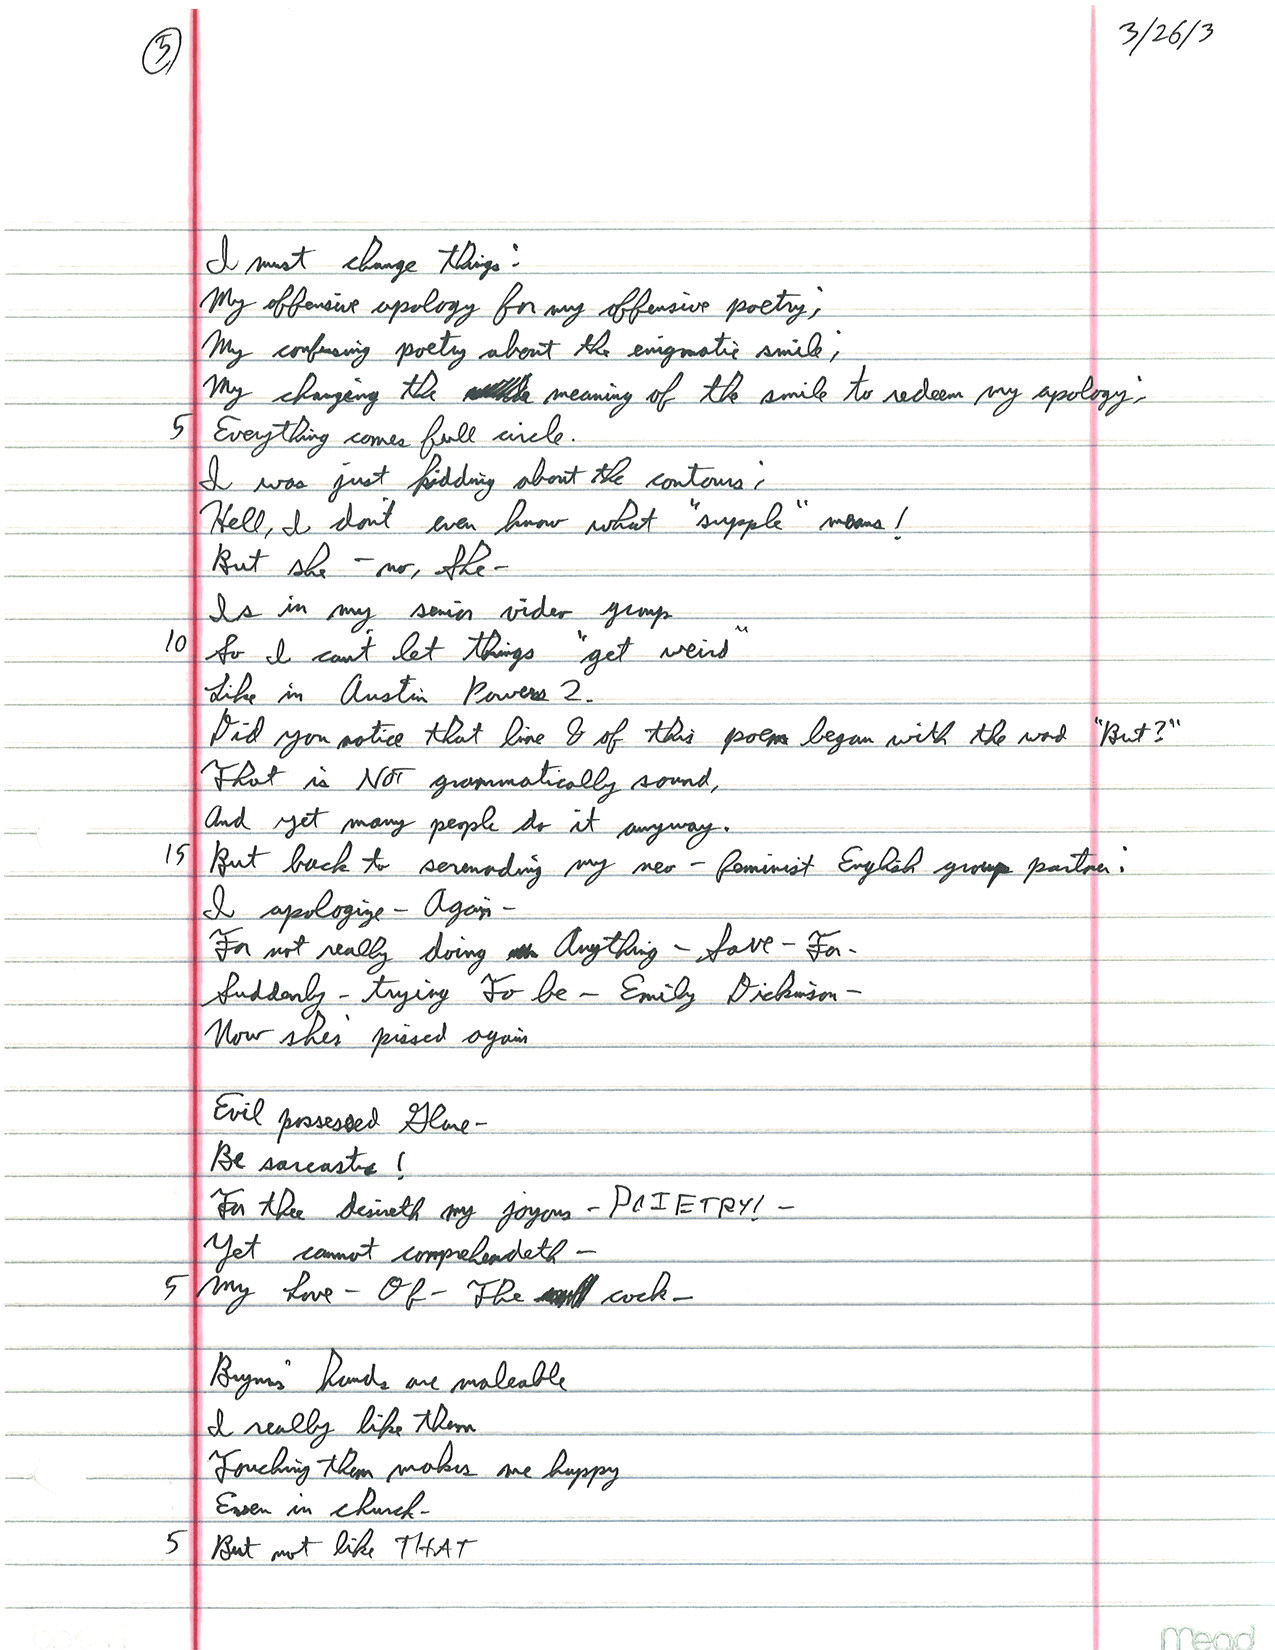 5
3/26/3
I must change things:
My offensive apology for my offensive poetry;
My confusing poetry about the enigmatic smile;
My changing the meaning of the smile to redeem my apology;
5 Everything comes full circle.
I was just kidding about the contours;
Hell, I don't even know what "supple" means!
But she – no, She –
Is in my senior video group
10 So I can't let things "get weird"
Like in Austin Powers 2.
Did you notice that line 8 of this poem began with the word "But?"
That is NOT grammatically sound,
And yet many people do it anyway.
15 But back to serenading my neo-feminist English group partner:
I apologize – Again –
For not really doing Anything – Save – For –
Suddenly – trying To be – Emily Dickinson –
Now she's pissed again
Evil possessed Glare –
Be sarcastic!
For thee desireth my joyous – POIETRY! –
Yet cannot comprehendeth –
5 My Love – Of – The cock –
Bryn's hands are maleable
I really like them
Touching them makes me happy
Even in church –
5 But not like THAT
Mead